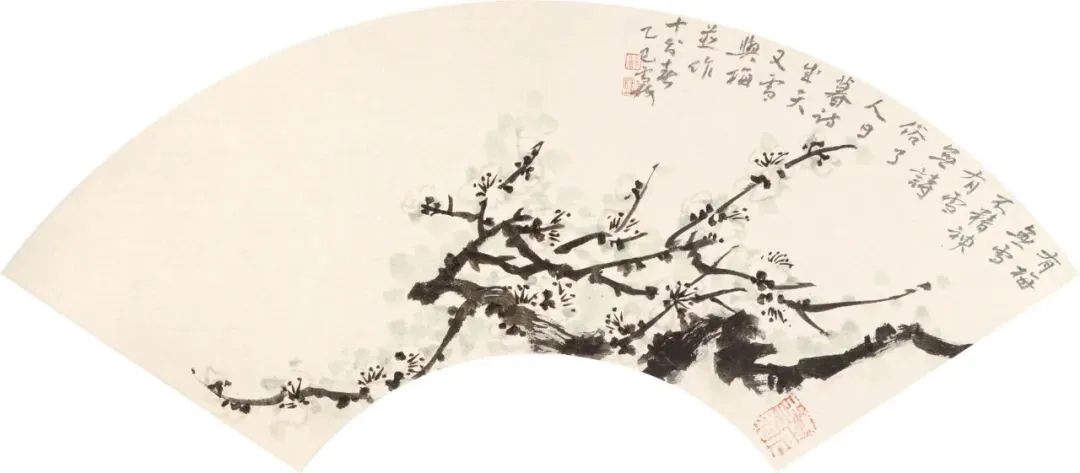 有梅
無雪
不精神
有雪
無詩
俗了
人日
暮詩
成天
又雪
與梅
並作
十分春
乙巳